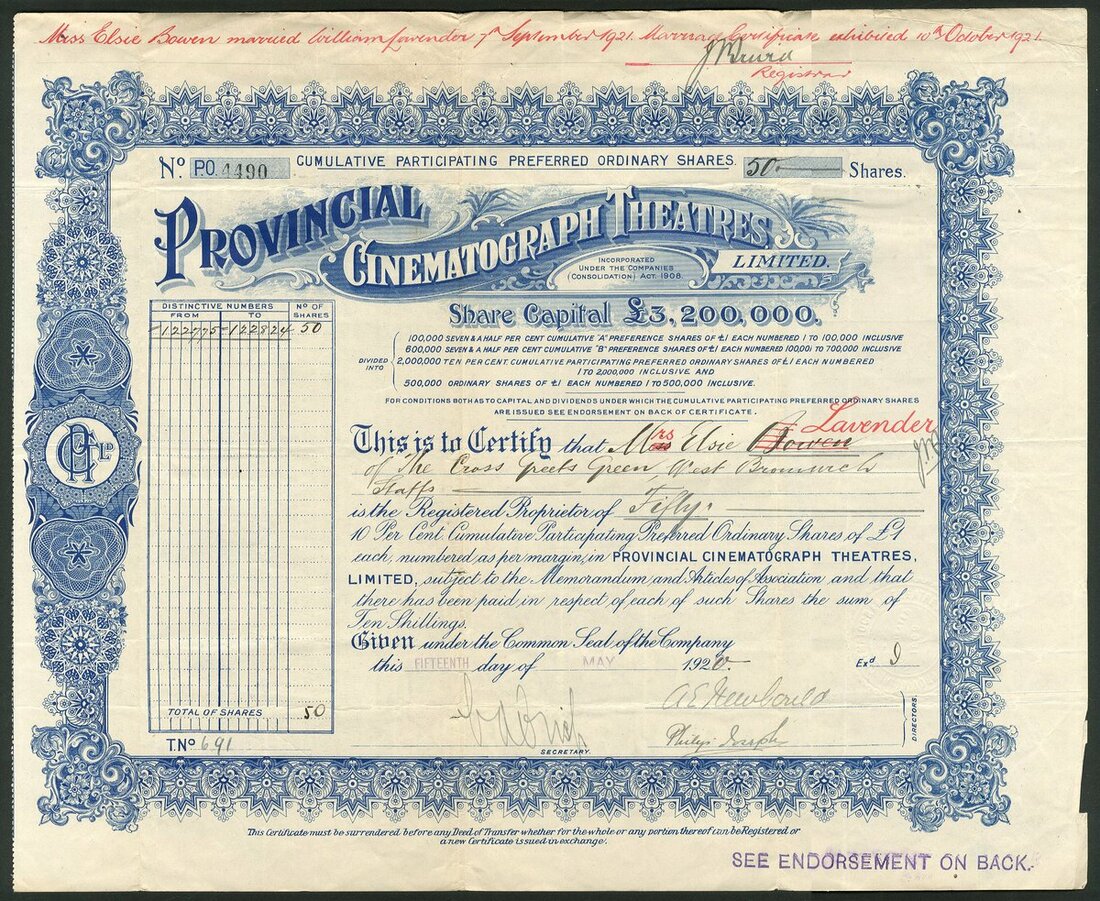 Miss Elsie Bowen married William Lavender 7th September 1921. Marriage Certificate exhibited 10th October 1921.
Registrar
No. PO 4490 CUMULATIVE PARTICIPATING PREFERRED ORDINARY SHARES. 50 Shares.
PROVINCIAL
CINEMATOGRAPH THEATRES
LIMITED.
INCORPORATED
UNDER THE COMPANIES
(CONSOLIDATION) ACT. 1908.
Share Capital £3,200,000.
DISTINCTIVE NUMBERS
FROM TO
No OF SHARES
122775 122824 50
DIVIDED INTO
100,000 SEVEN & A HALF PER CENT CUMULATIVE "A" PREFERENCE SHARES OF £1 EACH NUMBERED 1 TO 100,000 INCLUSIVE
600,000 SEVEN & A HALF PER CENT CUMULATIVE "B" PREFERENCE SHARES OF £1 EACH NUMBERED 100,001 TO 700,000 INCLUSIVE
2,000,000 TEN PER CENT CUMULATIVE PARTICIPATING PREFERRED ORDINARY SHARES OF £1 EACH NUMBERED
1 TO 2,000,000 INCLUSIVE AND
500,000 ORDINARY SHARES OF £1 EACH NUMBERED 1 TO 500,000 INCLUSIVE.
FOR CONDITIONS BOTH AS TO CAPITAL AND DIVIDENDS UNDER WHICH THE CUMULATIVE PARTICIPATING PREFERRED ORDINARY SHARES
ARE ISSUED SEE ENDORSEMENT ON BACK OF CERTIFICATE.
Lavender
This is to Certify that Mrs Elsie Bowen
of The Cross Greets Green, West Bromwich
Staffs
is the Registered Proprietor of Fifty
10 Per Cent Cumulative Participating Preferred Ordinary Shares of £1
each, numbered as per margin, in PROVINCIAL CINEMATOGRAPH THEATRES,
LIMITED, subject to the Memorandum and Articles of Association and that
there has been paid in respect of each of such Shares the sum of
Ten Shillings.
Given under the Common Seal of the Company
this FIFTEENTH day of MAY 1920 Exd
TOTAL OF SHARES 50
T.No 691
SECRETARY.
A E Newbould
Philip Joseph
DIRECTORS
This Certificate must be surrendered before any Deed of Transfer whether for the whole or any portion thereof can be Registered or
a new Certificate is issued in exchange.
SEE ENDORSEMENT ON BACK.